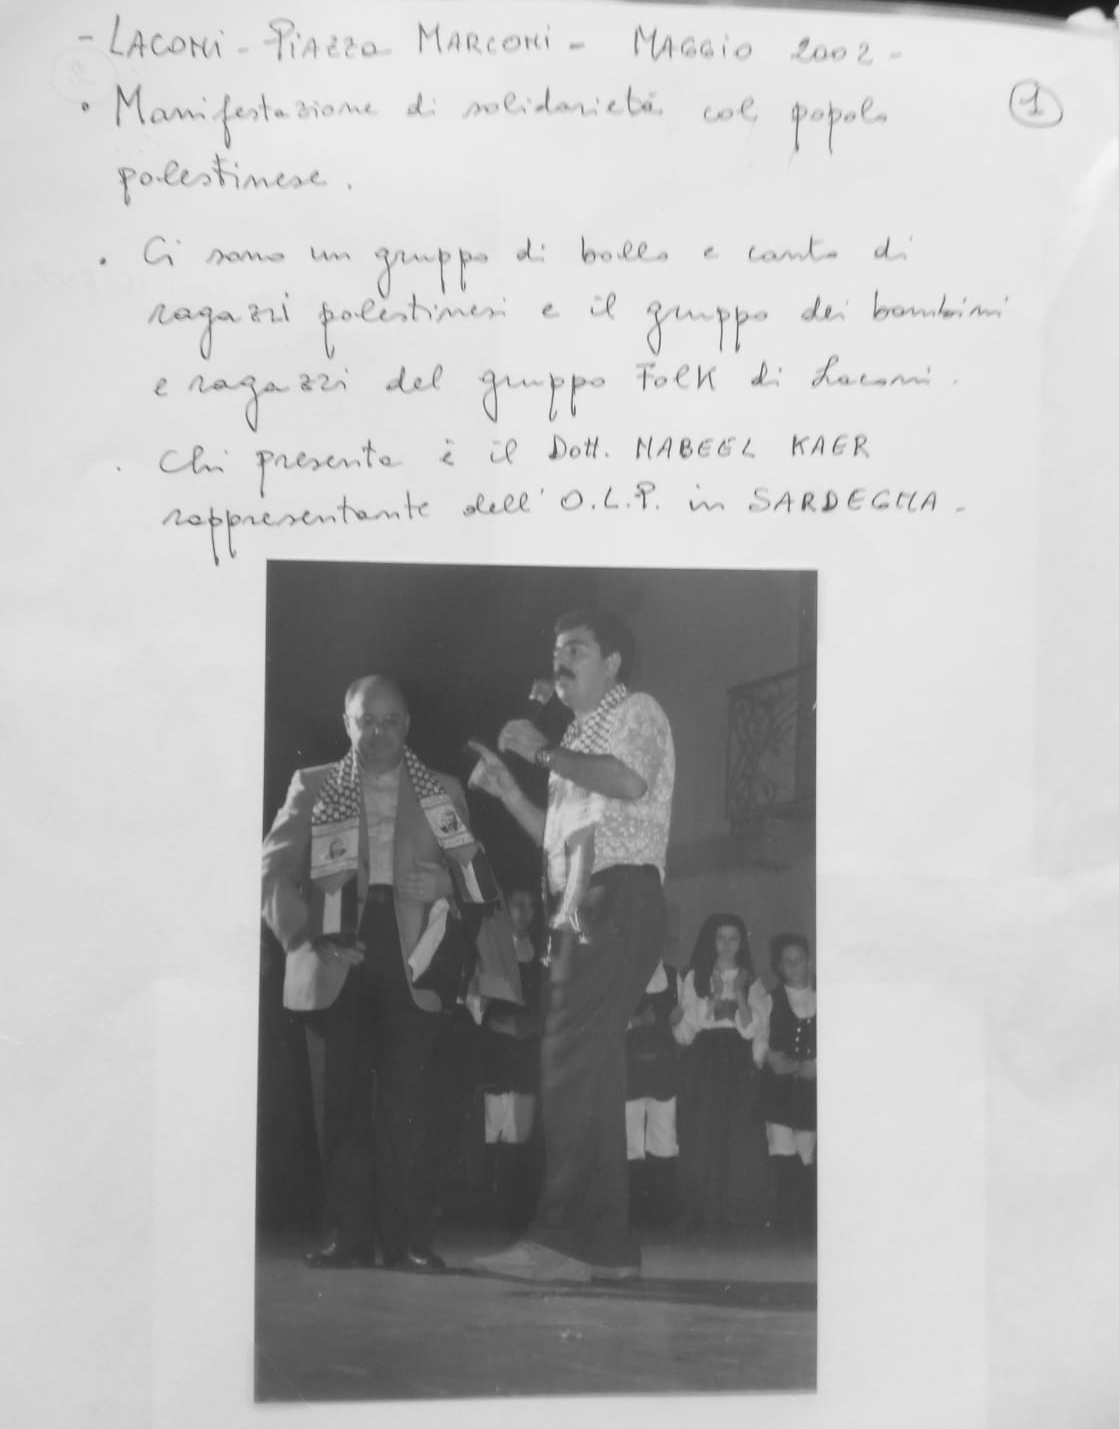 - LACONI - PIAZZA MARCONI - MAGGIO 2002 -
• Manifestazione di solidarietà col popolo
①
palestinese.
• Ci sono un gruppo di ballo e canto di
ragazzi palestinesi e il gruppo dei bambini
e ragazzi del gruppo FolK di Laconi.
. Chi presenta è il Dott. NABEEL KAER
rappresentante dell' O.L.P. in SARDEGNA -